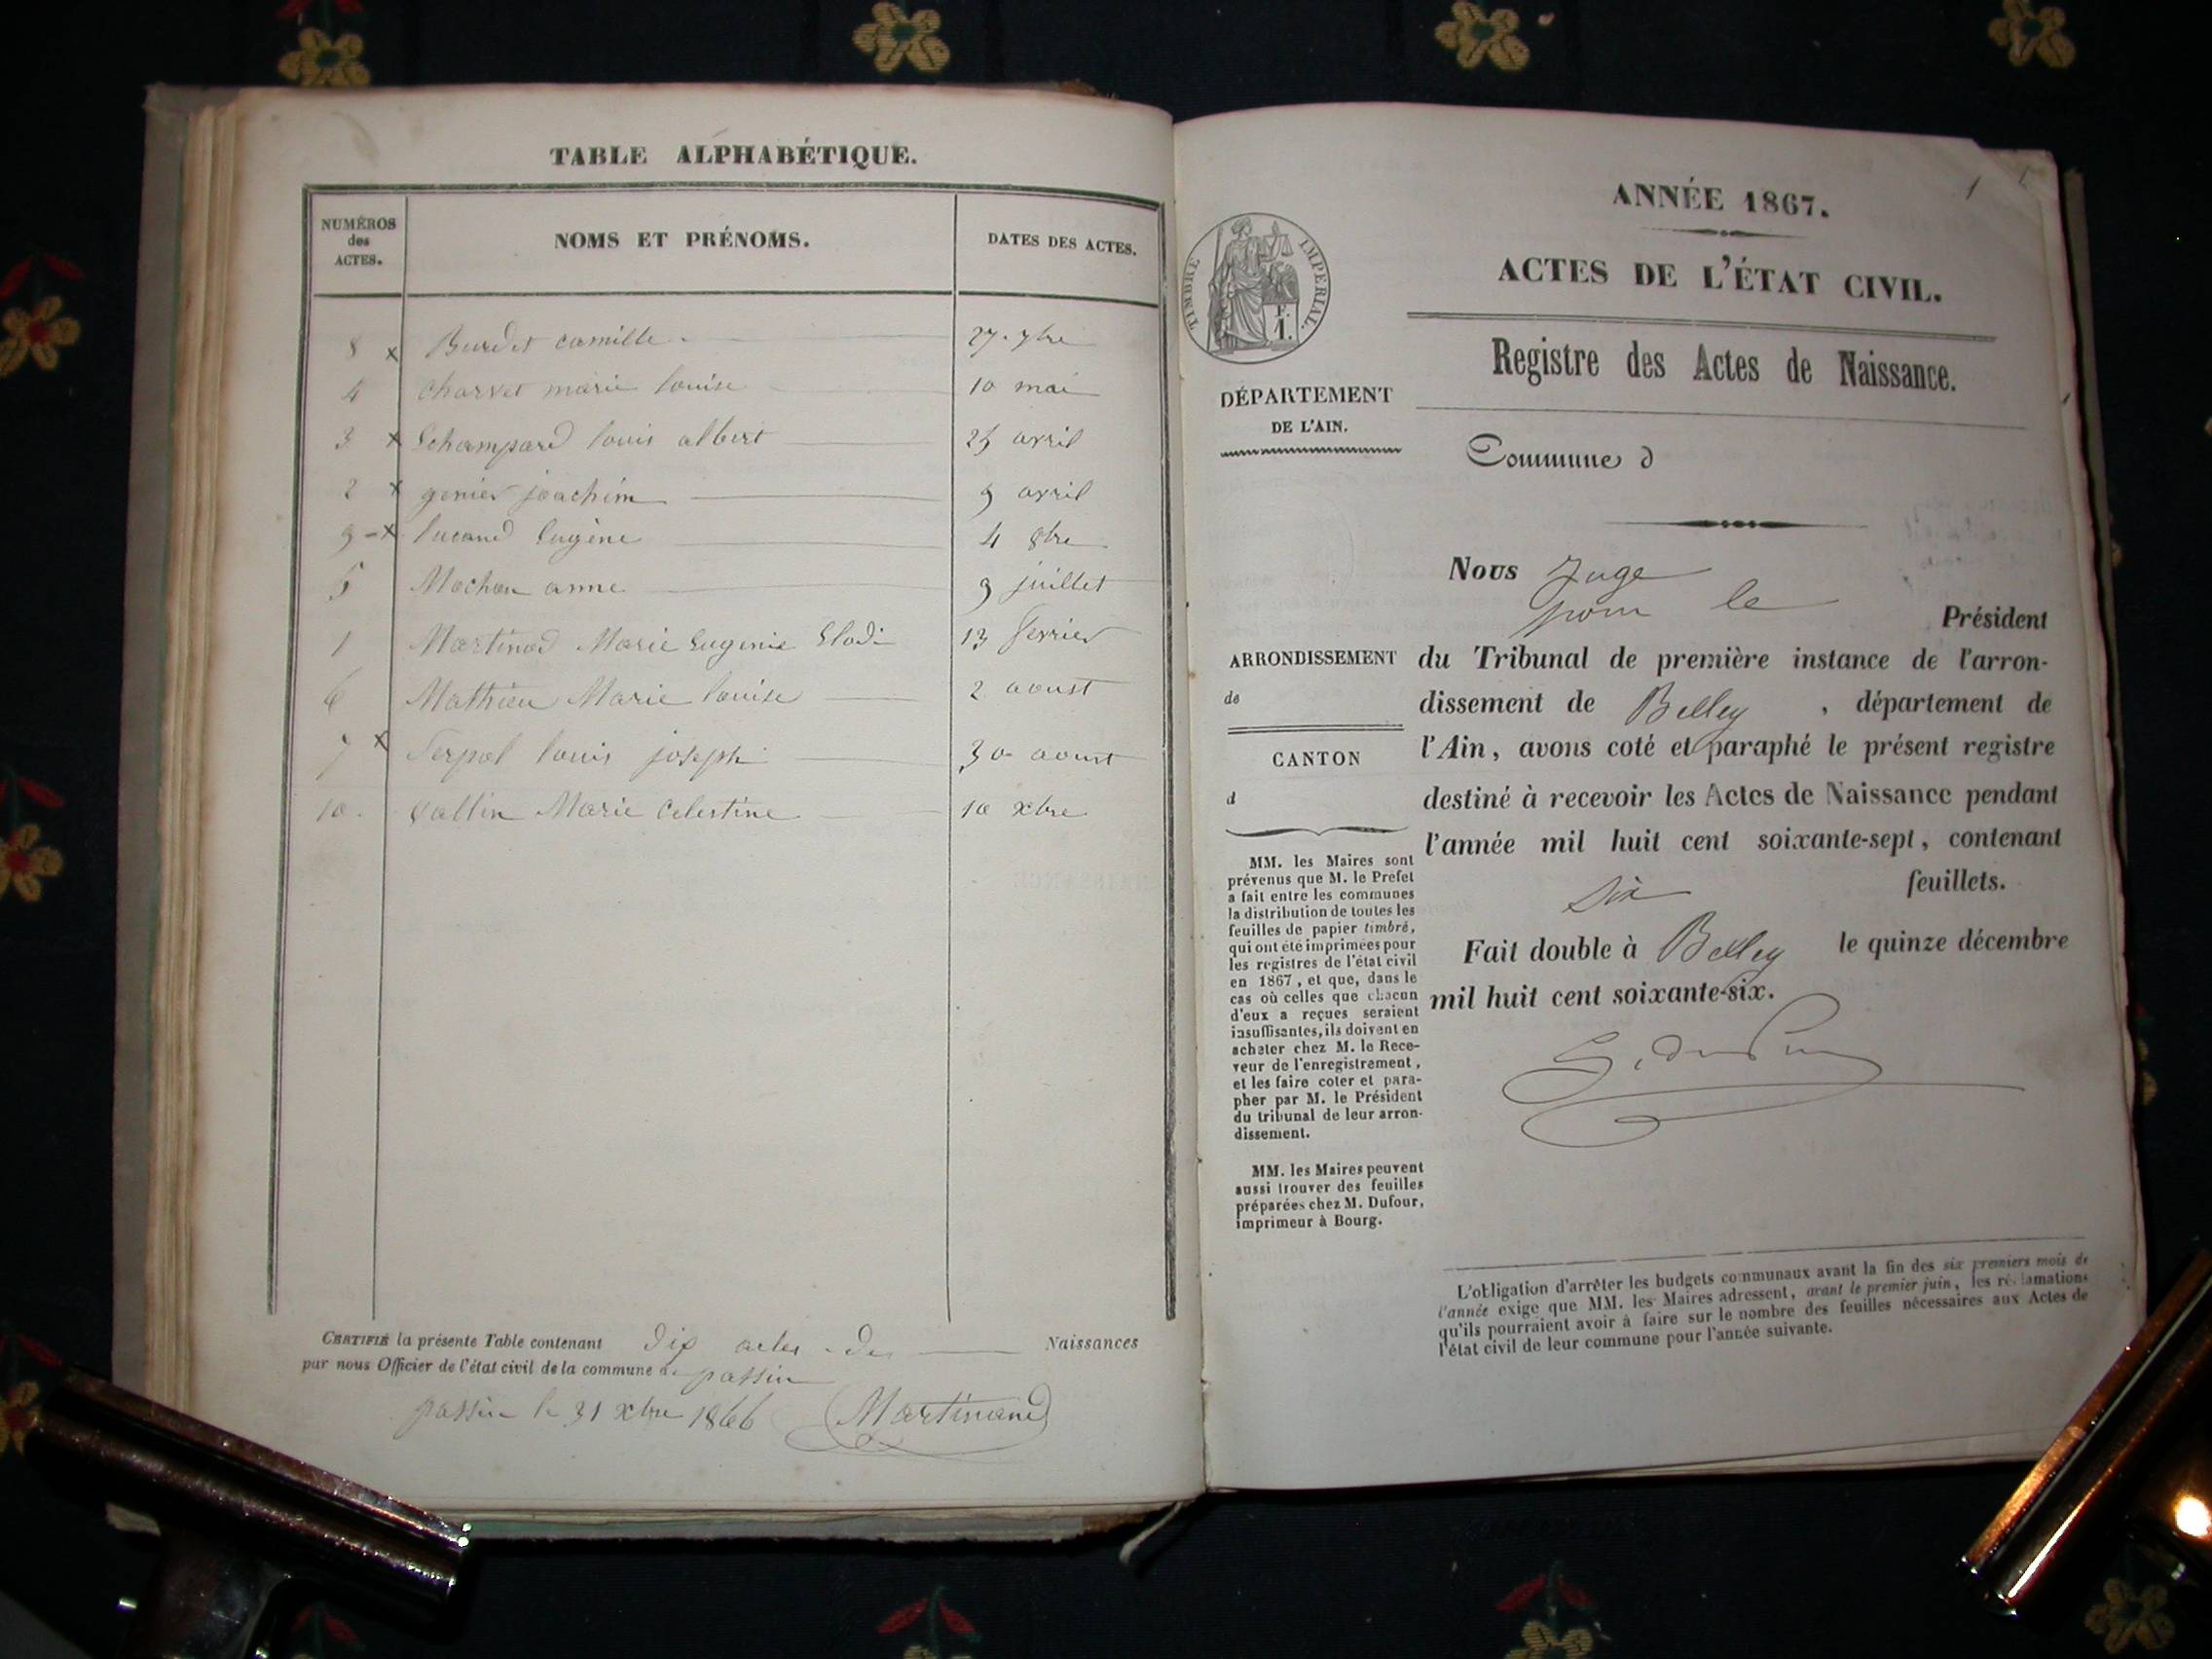 TABLE ALPHABÉTIQUE.
NUMÉROS
des
ACTES.
NOMS ET PRÉNOMS.
DATES DES ACTES.
8 x Burdet camille 27. 7bre
4 charvet marie louise 10 mai
3 x Echampard louis albert 25 avril
2 x genier joachim 9 avril
9 - x lucand Eugène 4 8bre
5 Mochon anne 9 juillet
1 Martinod Marie Eugenie Elodi 13 fevrier
6 Mathieu Marie louise 2 aoust
7 x Serpol louis joseph 30 aoust
10. vallin Marie celestine 10 xbre
CERTIFIÉ la présente Table contenant dix actes de Naissances
par nous Officier de l'état civil de la commune de passin
passin le 31 xbre 1866 Martinand
1
ANNÉE 1867.
ACTES DE L'ÉTAT CIVIL.
TIMBRE IMPÉRIAL.
F.
1.
Registre des Actes de Naissance.
DÉPARTEMENT
DE L'AIN.
Commune d
Nous Juge
pour le
Président
ARRONDISSEMENT
de
CANTON
d
du Tribunal de première instance de l'arron-
dissement de Belley , département de
l'Ain, avons coté et paraphé le présent registre
destiné à recevoir les Actes de Naissance pendant
l'année mil huit cent soixante-sept, contenant
six feuillets.
Fait double à Belley le quinze décembre
mil huit cent soixante-six.
MM. les Maires sont
prévenus que M. le Préfet
a fait entre les communes
la distribution de toutes les
feuilles de papier timbré,
qui ont été imprimées pour
les registres de l'état civil
en 1867, et que, dans le
cas où celles que chacun
d'eux a reçues seraient
insuffisantes, ils doivent en
acheter chez M. le Rece-
veur de l'enregistrement,
et les faire coter et para-
pher par M. le Président
du tribunal de leur arron-
dissement.
MM. les Maires peuvent
aussi trouver des feuilles
préparées chez M. Dufour,
imprimeur à Bourg.
L'obligation d'arrêter les budgets communaux avant la fin des six premiers mois de
l'année exige que MM. les Maires adressent, avant le premier juin, les réclamations
qu'ils pourraient avoir à faire sur le nombre des feuilles nécessaires aux Actes de
l'état civil de leur commune pour l'année suivante.